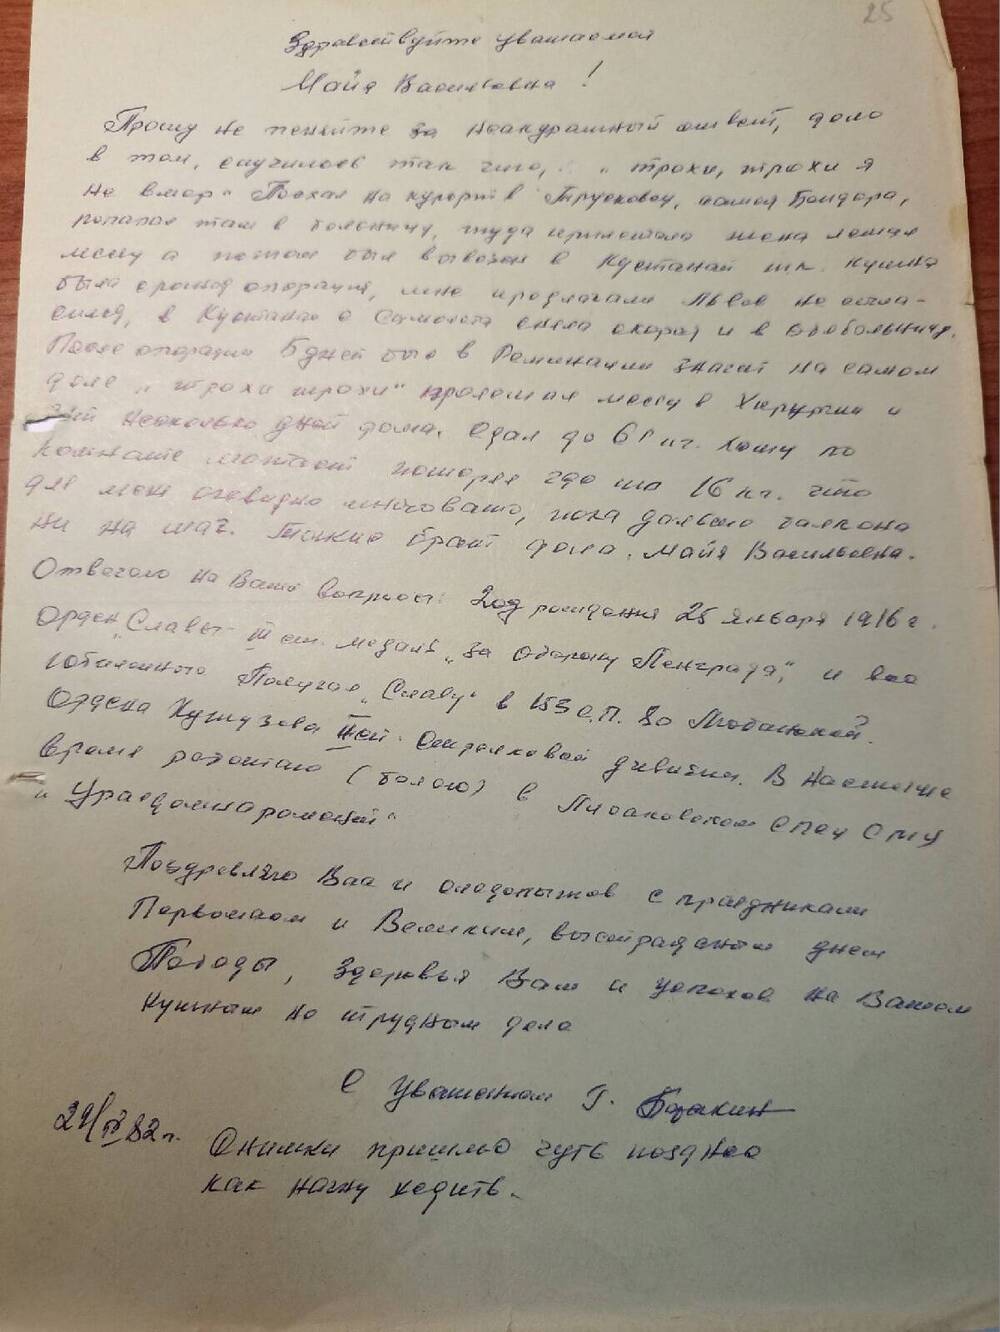 25
Здравствуйте уважаемая
Майя Васильевна!
Прошу не пеняйте за неаккуратный ответ, дело
в том, случилось так что, "трохи, трохи я
не вмер" Поехал на курорт в Трусковец, 
попал там в больницу, туда прилетала жена лежал
месяц а потом был вывезен в Кустанай т.к. нужна
была срочная операция, мне предлагали Львов не согла-
сился, в Кустанае с самолета сняла скорая и в облбольницу.
После операции 5 дней был в Реминации значит на самом
деле "трохи трохи" пролежал месяц в Хирургии и
несколько дней дома. Сдал до 61 кг. Хожу по
комнате потерял где то 16 кг. что
для меня очевидно многовато, пока дальше балкона
ни на шаг. дома. Майя Васильевна.
Отвечаю на Ваши вопросы: Год рождения 25 января 1916 г.
Орден "Славы" III ст. медаль "За оборону Ленграда", и все
юбилейные Получал "Славу" в 153 с.п. 80 Любаньской.
Ордена Кутузова IIой Стрелковой дивизии. В настоящее
время работаю (болею) в Лисаковском Спец СМУ
"Уралдомнаремонт"
Поздравляю Вас и следопытов с праздниками
Первомаем и Великим, выстраданым днем
Победы, Здоровья Вам и успехов на Вашем
нужном но трудном деле
С уважением Г.
29/IV 82 г.
Снимки пришлю чуть позднее
как начну ходить.